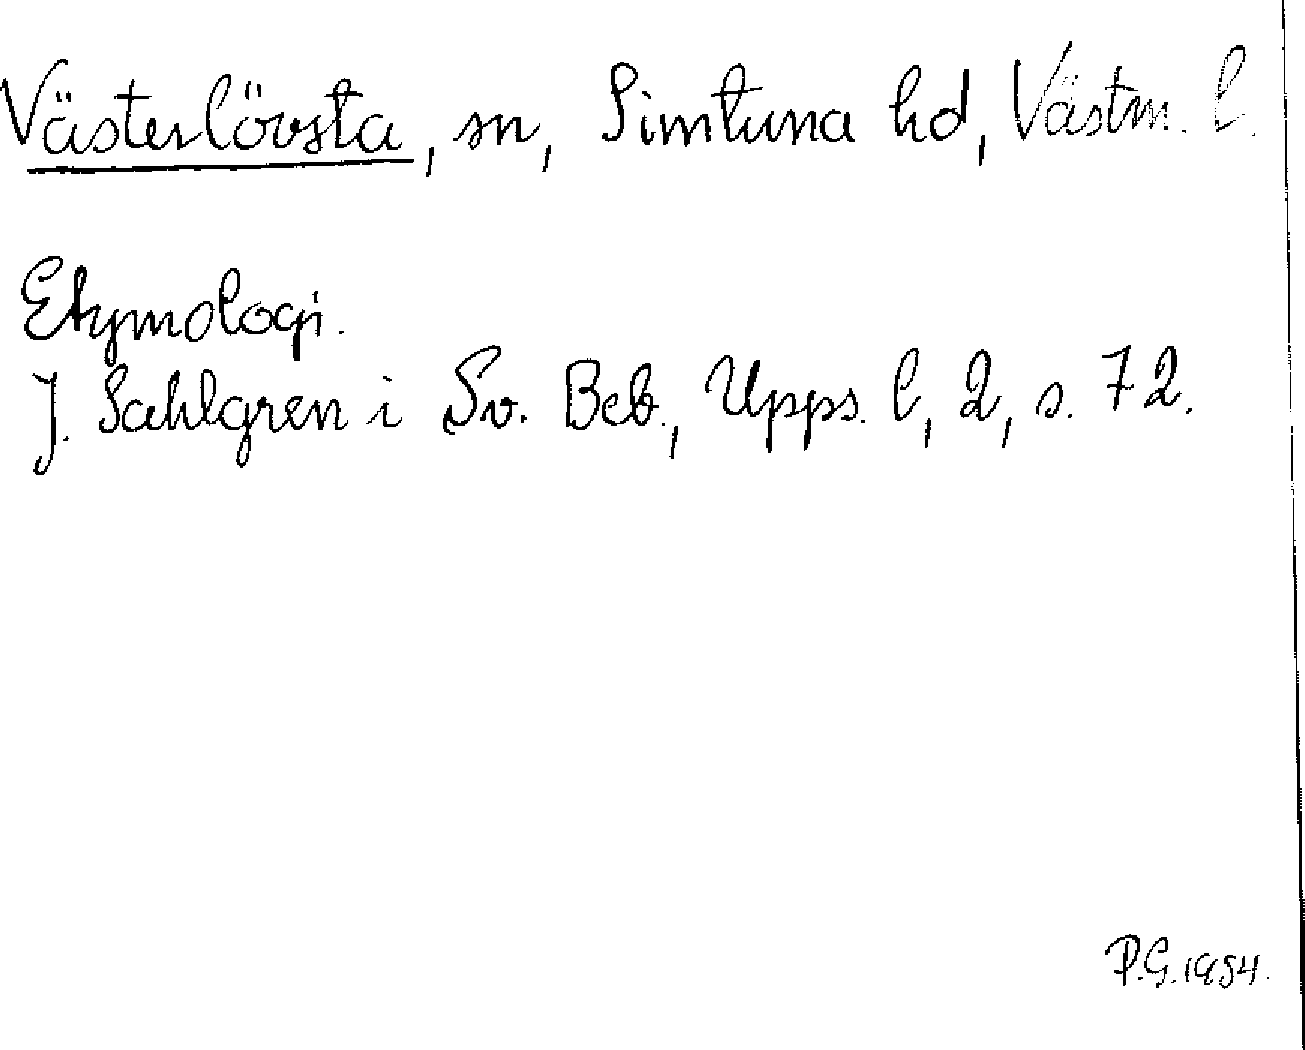 Västerlövsta, sn, Simtuna hd, Västm. l.
Etymologi.
J. Sahlgren i Sv. Beb., Upps. l, 2, s. 72.
P.G. 1954.